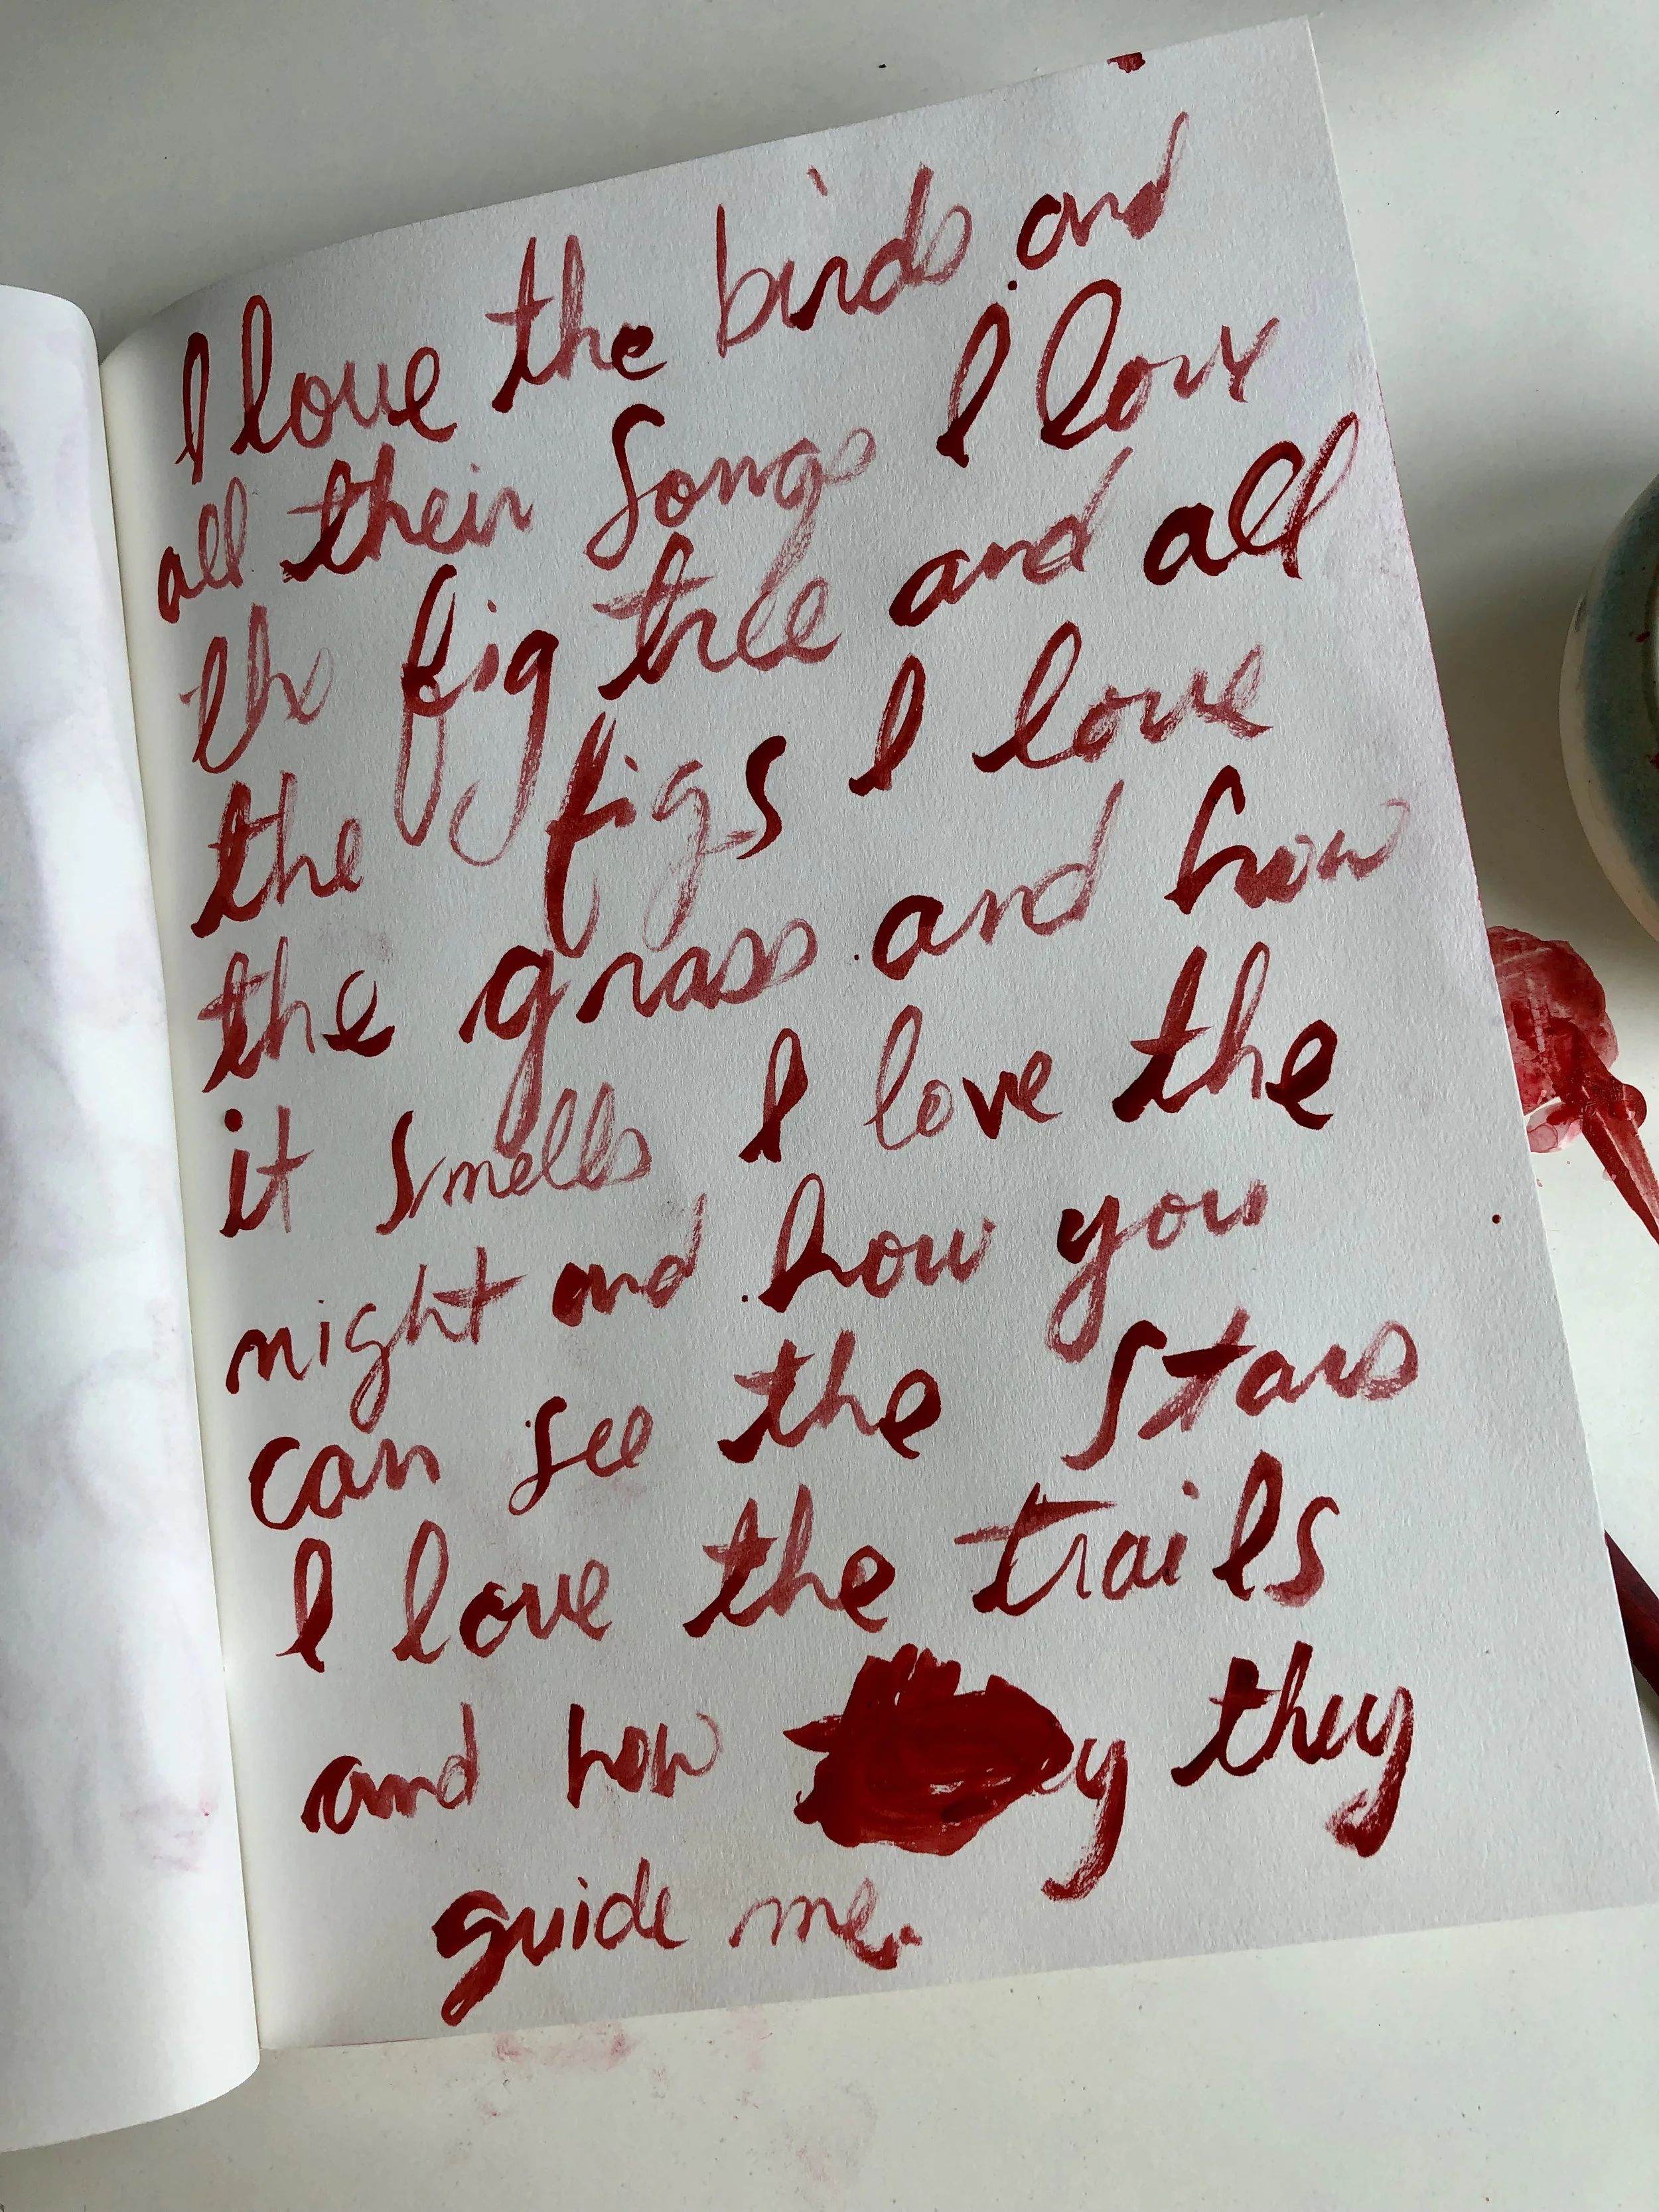 I love the birds and
all their songs I love
the fig tree and all
the figs I love
the grass and how
it smells I love the
night and how you
can see the stars
I love the trails
and how they
guide me.